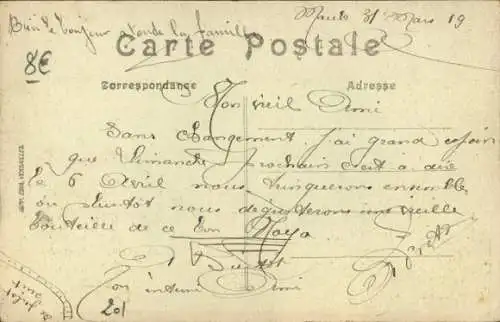 Bien le bonjour toute la famille
Mardi 31 Mars 19
8€
Carte Postale
Correspondance
Adresse
Mon vieil Ami
Sans changement j'ai grand espoir
que Dimanche prochain c'est a dire
le 6 Avril nous trinquerons ensemble
ou plutôt nous dégusterons une vieille
bouteille de ce bon
A Bientot
Ton intime Ami
201